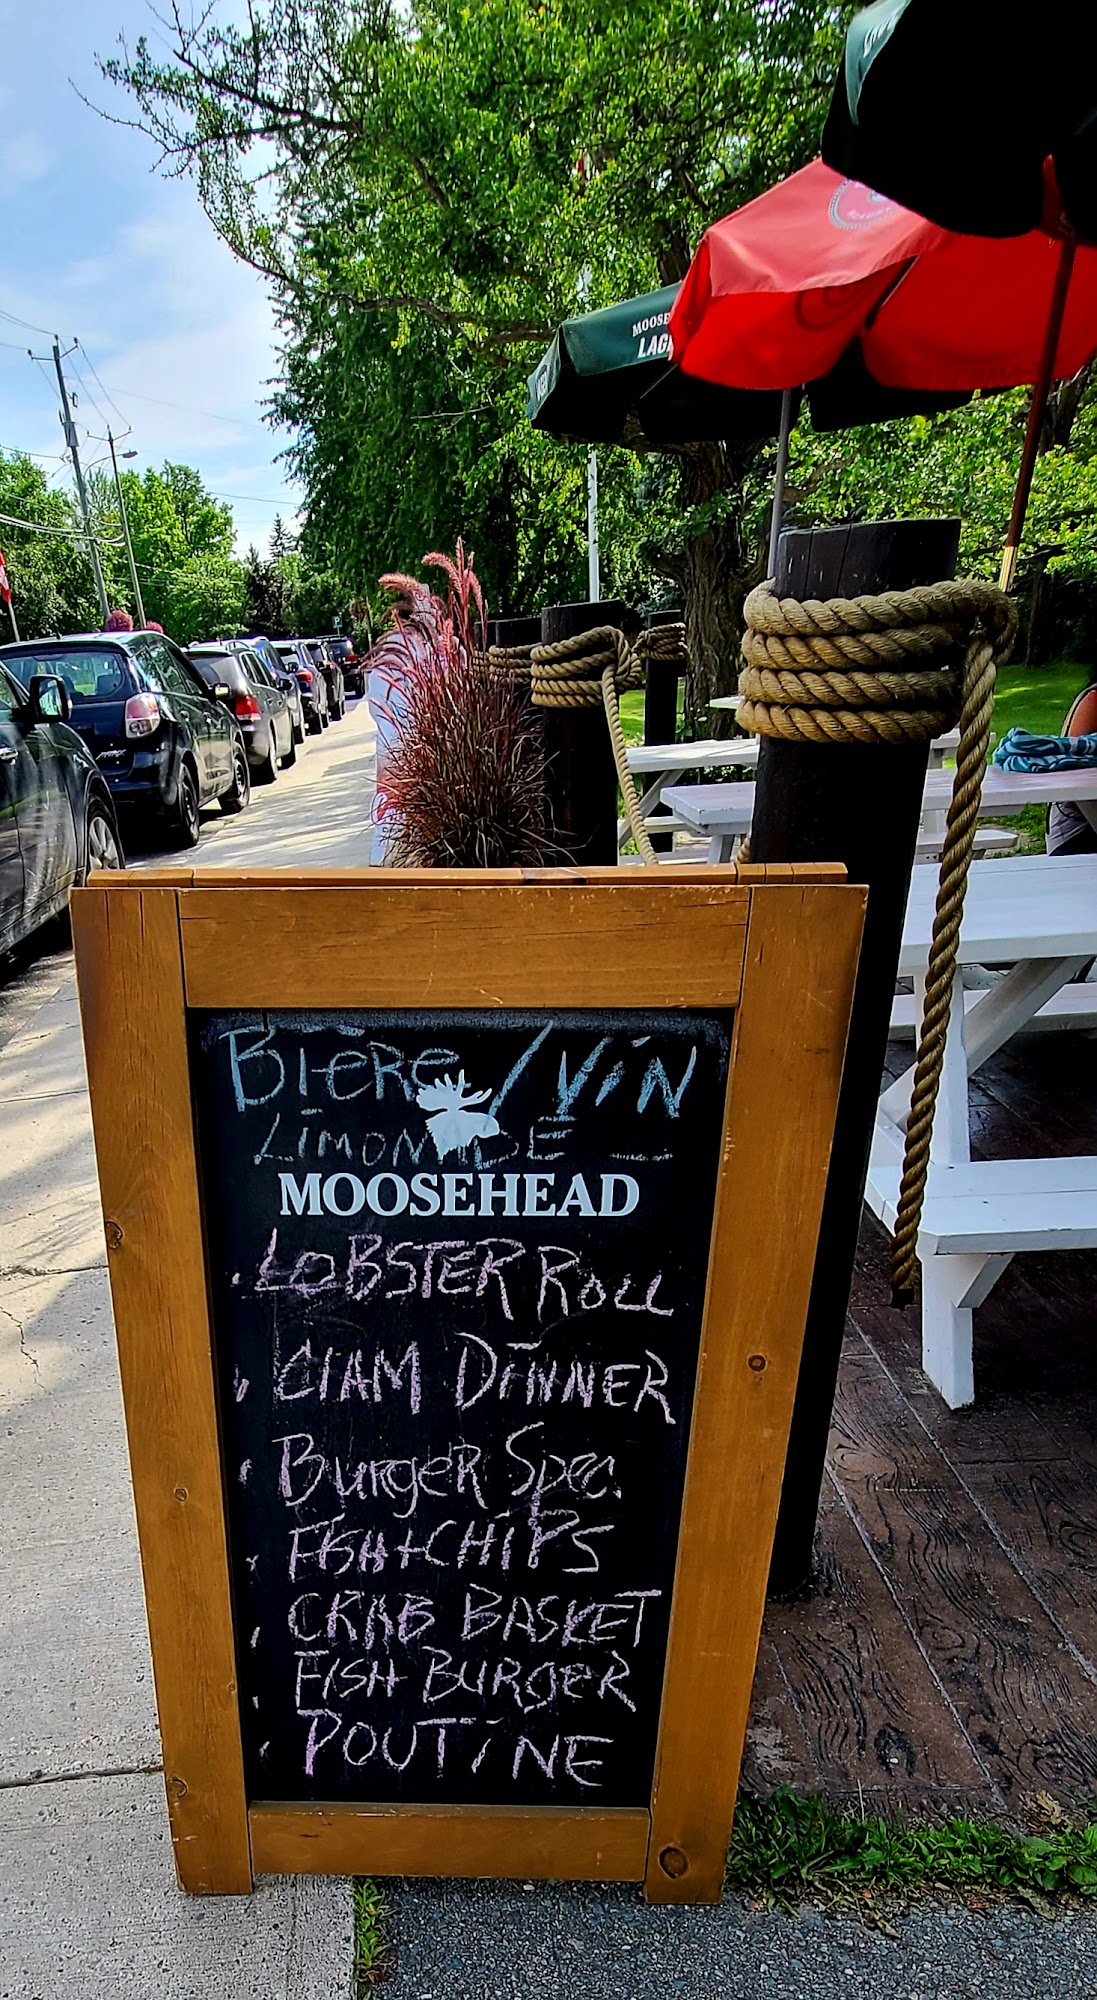 MOOSE
LAG
Bière / Vin
Limonade
MOOSEHEAD
LOBSTER ROLL
CLAM DINNER
BurgeR Spec.
FISH + CHIPS
CRAB BASKET
FISH BurgeR
POUTiNE